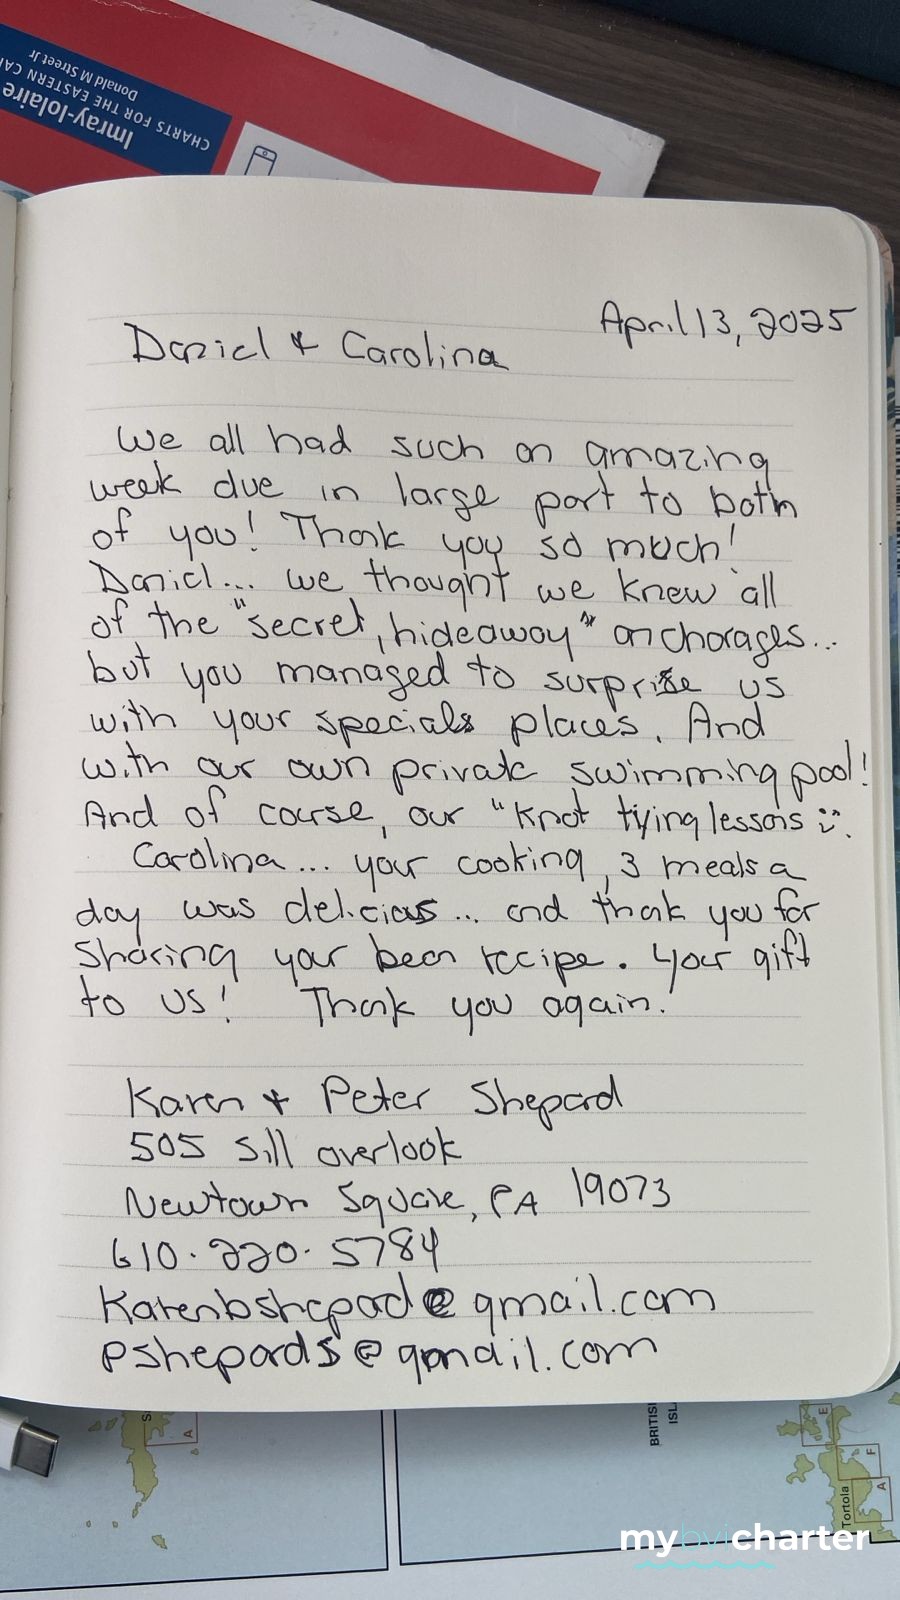 Imray-Iolaire
CHARTS FOR THE EASTERN CA
Donald M Street Jr
April 13, 2025
Daniel & Carolina
We all had such an amazing
week due in large part to both
of you! Thank you so much!
Daniel... we thought we knew all
of the "secret, hideaway" anchorages...
but you managed to surprise us
with your special places. And
with our own private swimming pool!
And of course, our "Knot tying lessons :).
Carolina... your cooking, 3 meals a
day was delicious... and thank you for
sharing your bean recipe. Your gift
to us! Thank you again.
Karen + Peter Shepard
505 Sill overlook
Newtown Square, PA 19073
610.220.5784
Karenbshepard@gmail.com
pshepards@gmail.com
S
A
BRITIS
ISL
E
F
A
Tortola
mybvicharter